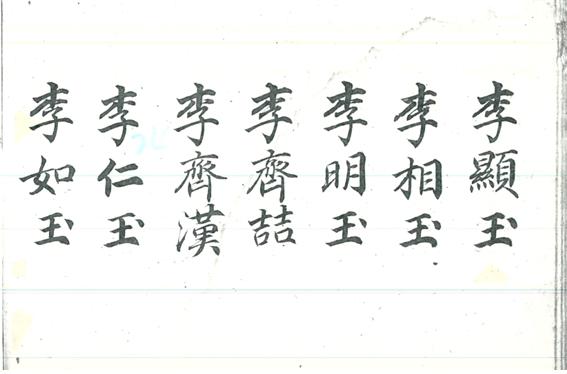 李顯玉
李相玉
李明玉
李齊喆
李齊漢
李仁玉
李如玉